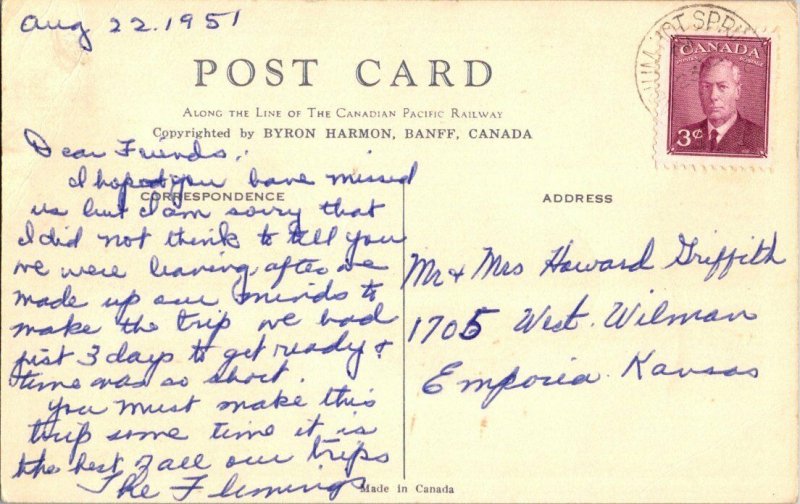 Aug 22. 1951
UM HOT SPRI
CANADA
POSTES POSTAGE
3¢
POST CARD
ALONG THE LINE OF THE CANADIAN PACIFIC RAILWAY
Copyrighted by BYRON HARMON, BANFF, CANADA
CORRESPONDENCE
Dear Friends;
I hope you have missed
us but I am sorry that
I did not think to tell you
we were leaving after we
made up our minds to
make the trip we had
just 3 days to get ready &
time was so short.
you must make this
trip some time it is
the best of all our trips
The Flemings
ADDRESS
Mr & Mrs Howard Griffith
1705 West. Wilman
Emporia Kansas
Made in Canada